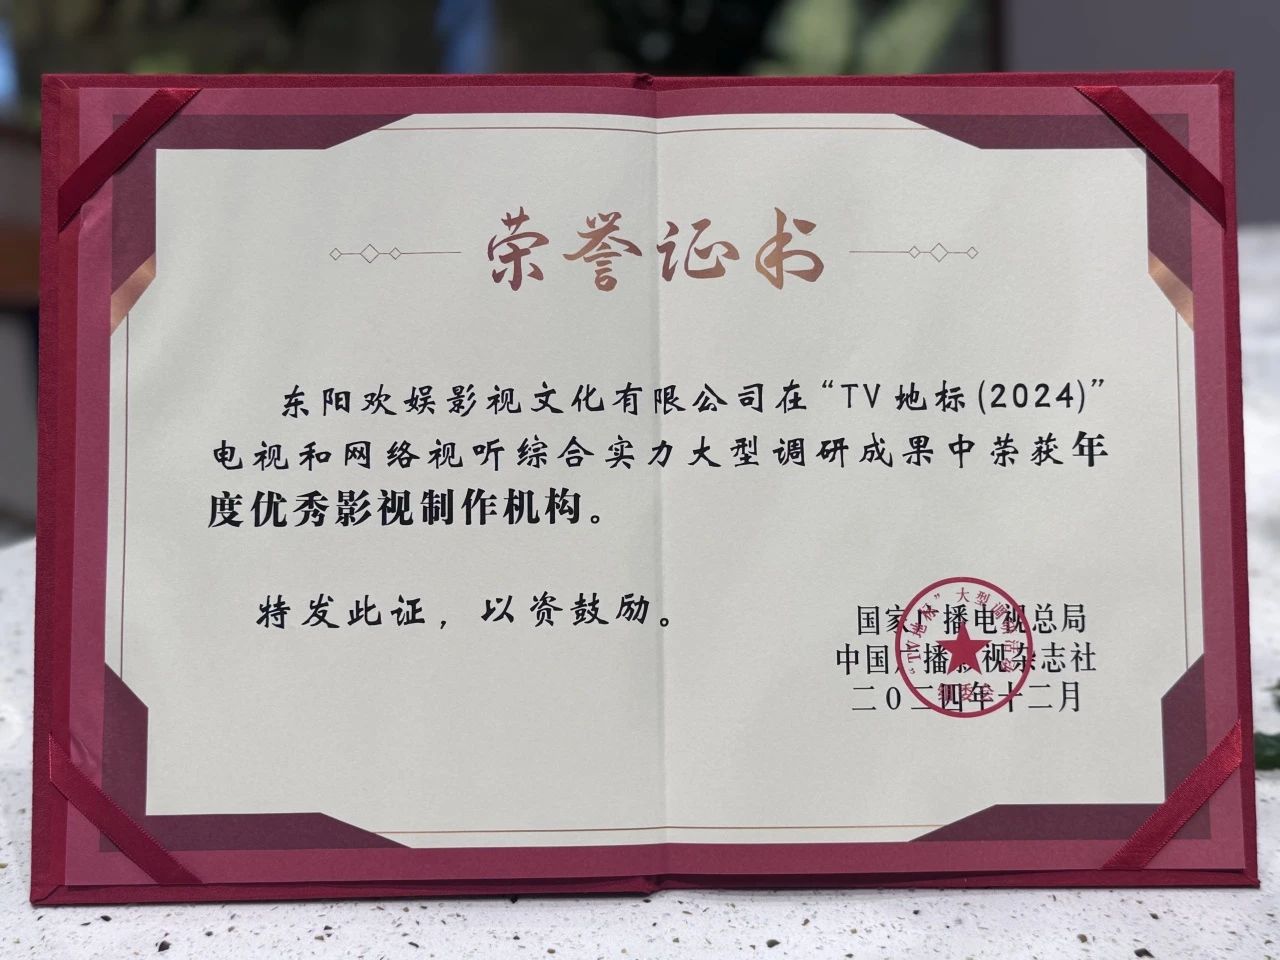 荣誉证书
东阳欢娱影视文化有限公司在“TV地标(2024)”
电视和网络视听综合实力大型调研成果中荣获年
度优秀影视制作机构。
特发此证，以资鼓励。
国家广播电视总局
中国广播影视杂志社
二〇二四年十二月
“TV地标”大型调研活动
组委会